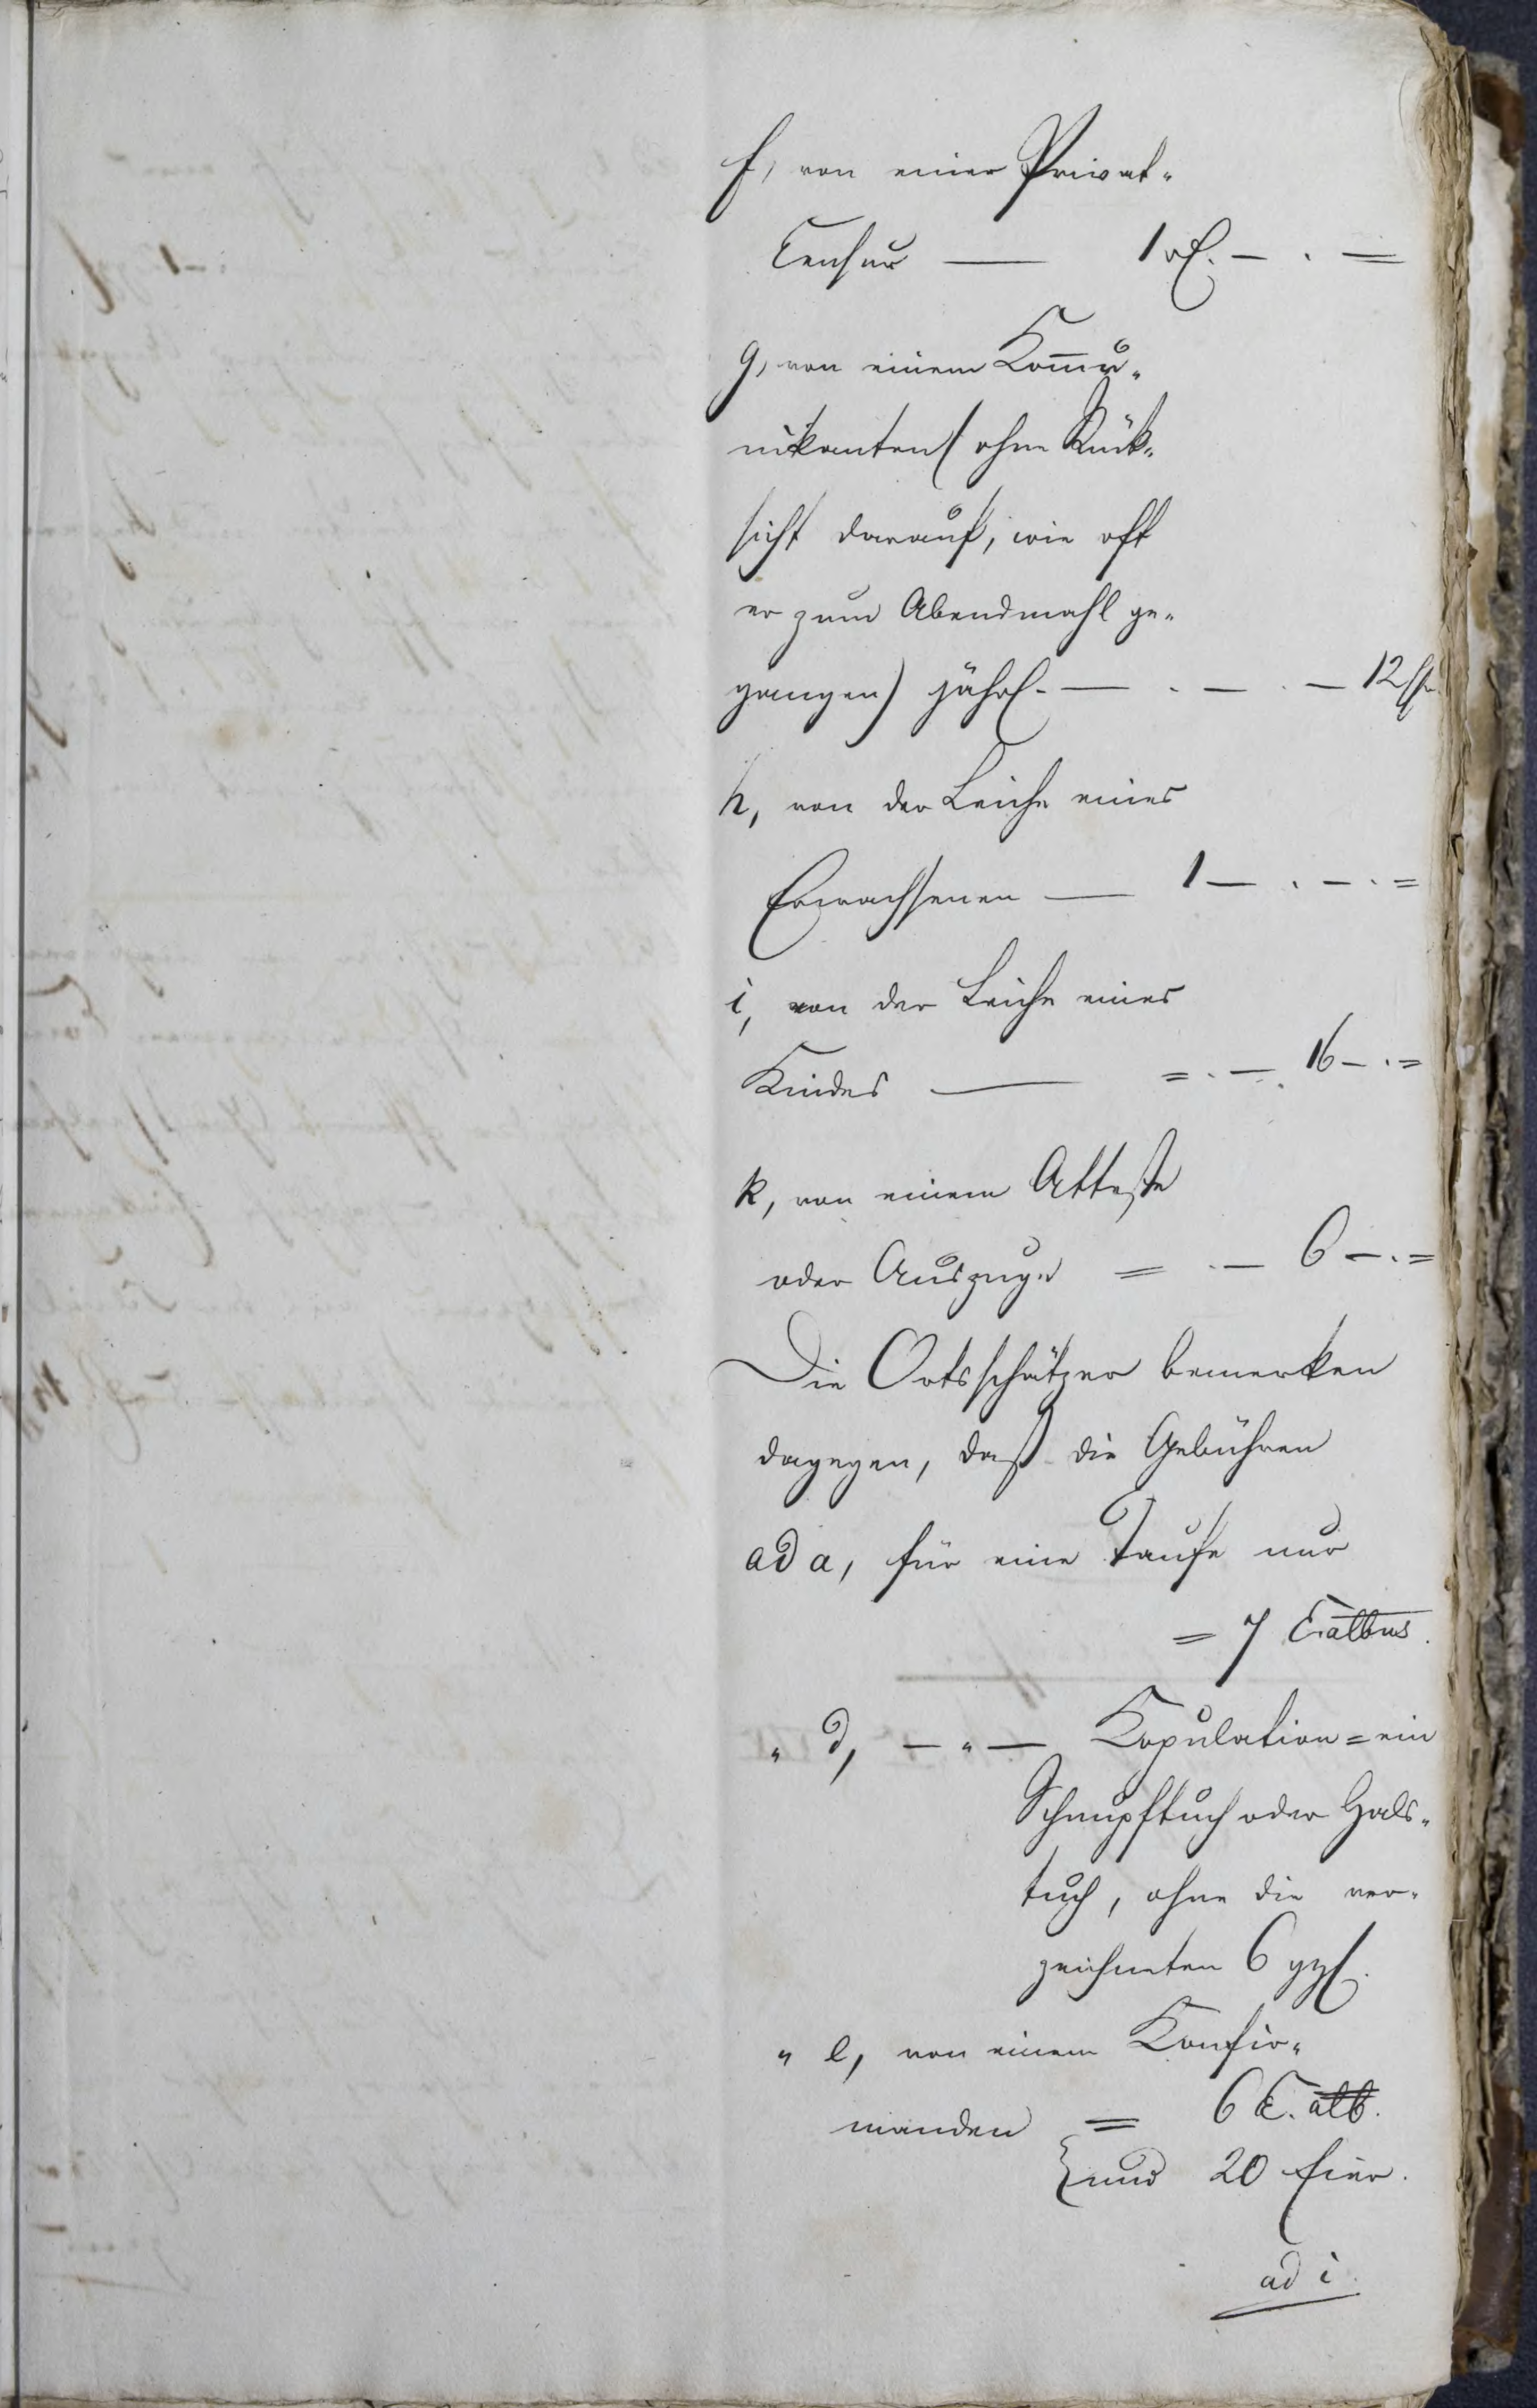 f, von einer Privat-
Censur — 1 rℓ. — . =
g, von einem Kom̅u-
nikanten (ohne Rück-
sicht darauf, wie oft
er zum Abendmahl ge-
gangen) jährl. — . — . — 12
h, von der Leiche eines
Erwachsenen — 1 — . — . =
i, von der Leiche eines
Kindes — = . — . 16 — . =
k, von einem Atteste
oder Auszuge = . — 6 — . =
Die Ortsschätzer bemerken
dagegen, daß die Gebühren
ad a, für eine Taufe nur
= 7 C.albus.
" d, — " — Kopulation = ein
Schnupftuch oder Hals-
tuch, ohne die ver-
zeichneten 6 ggl.
" e, von einem Konfir-
manden = 6 C. alb.
und 20 Eier.
ad i.